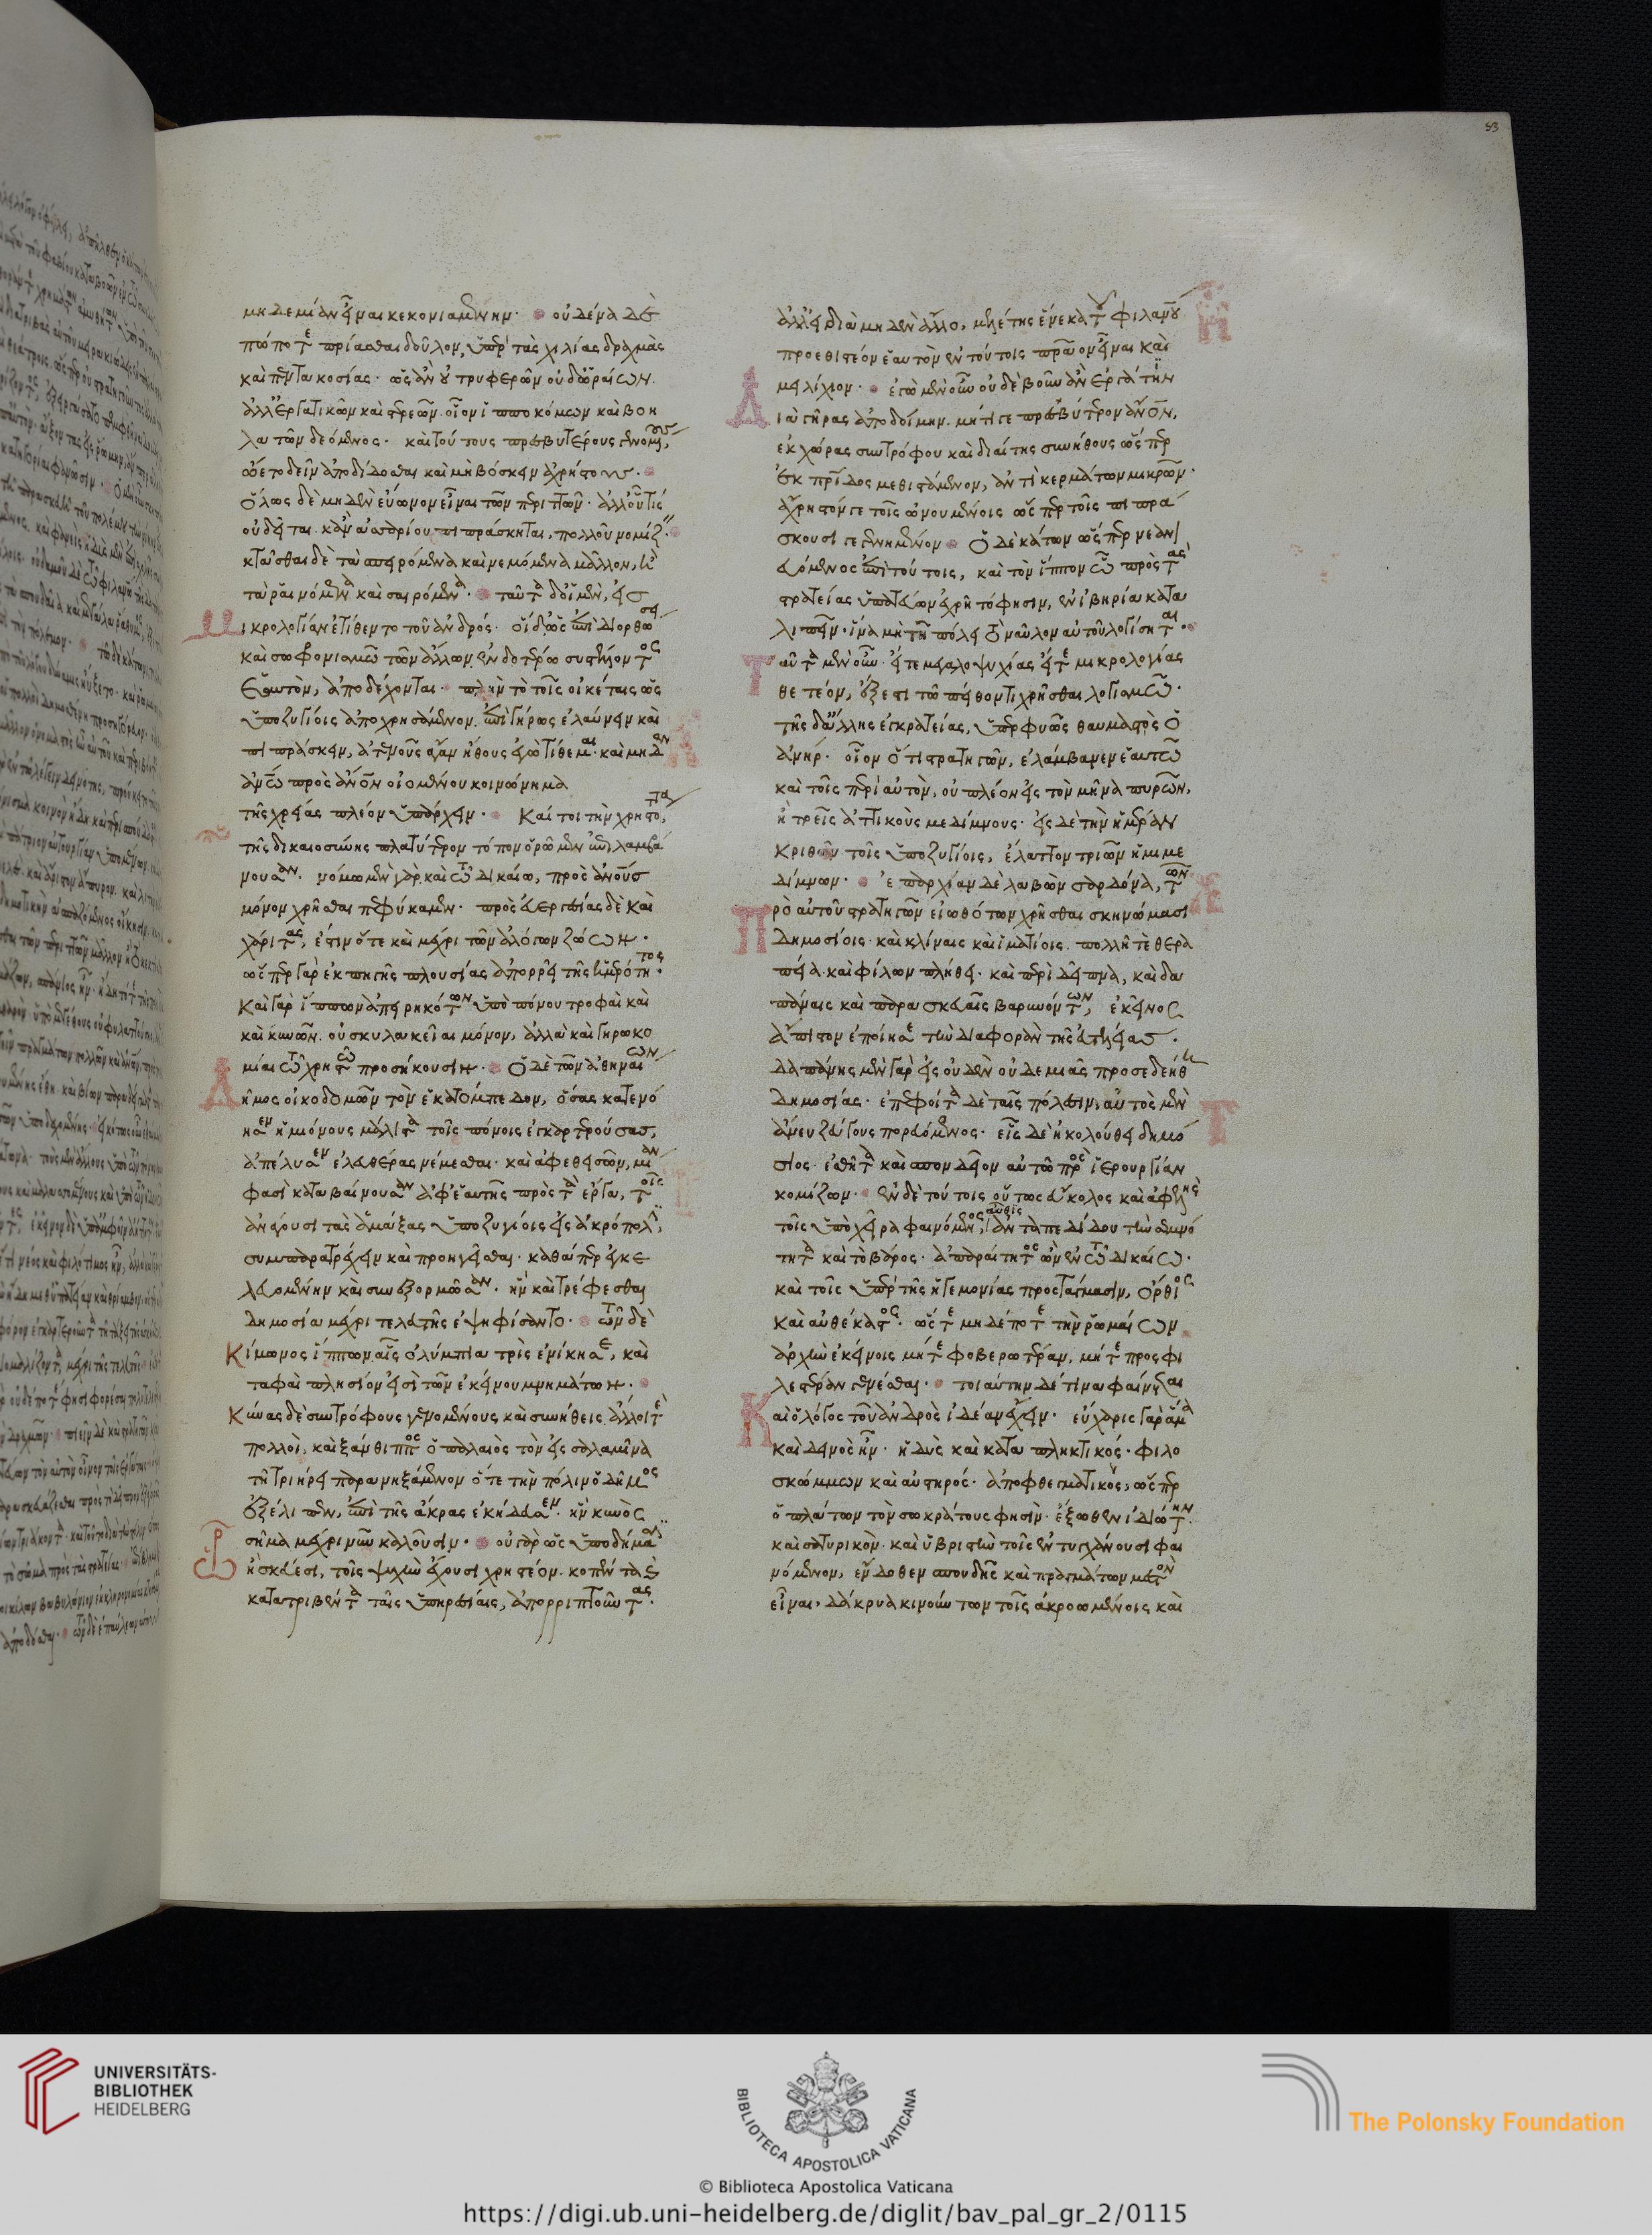 μηδεμίαν εἶναι κεκονιαμένην· οὐδένα δὲ
πώποτε πρίασθαι δοῦλον, ὑπὲρ τὰς χιλίας δραχμὰς
καὶ πεντακοσίας· ὡς ἂν οὐ τρυφερῶν οὐδ' ὡραίων.
ἀλλ' ἐργατικῶν καὶ στερεῶν. οἷον ἱπποκόμων καὶ βοη
λατῶν δεόμενος· καὶ τούτους πρεσβυτέρους γενομένους,
ᾤετο δεῖν ἀποδίδοσθαι καὶ μὴ βόσκειν ἀχρήστους·
Ὅλως δὲ μηδὲν εὔωνον εἶναι τῶν περιττῶν· ἀλλ' οὗ τίς
οὐ δεῖται. κἂν ἀσσαρίου πιπράσκηται, πολλοῦ νομίζειν·
κτᾶσθαι δὲ τὰ σπειρόμενα καὶ νεμόμενα μᾶλλον, ἢ
τὰ ῥαινόμενα καὶ σαιρόμενα· ταῦτα δ' οἱ μὲν, εἰς
μικρολογίαν ἐτίθεντο τοῦ ἀνδρός· οἱ δ' ὡς ἐπὶ διορθώσει
καὶ σωφρονισμῶ τῶν ἄλλων ἐνδοτέρω συστέλλοντος
ἑαυτὸν, ἀποδέχονται· πλὴν τὸ τοῖς οἰκέταις ὡς
ὑποζυγίοις ἀποχρησάμενον. ἐπὶ γήρως ἐλαύνειν καὶ
πιπράσκειν, ἀτενοῦς ἄγαν ἤθους ἐγὼ τίθεμαι· καὶ μηδὲν
ἀνθρώπῳ πρὸς ἄνθρωπον οἰομένου κοινώνημα
τῆς χρείας πλέον ὑπάρχειν· Καί τοι τὴν χρηστότητα,
τῆς δικαιοσύνης πλατύτερον τόπον ὁρῶμεν ἐπιλαμβά
νουσαν. νόμω μὲν γὰρ καὶ τῶ δικαίω, πρὸς ἀνθρώπους
μόνον χρῆσθαι πεφύκαμεν· πρὸς εὐεργεσίας δὲ καὶ
χάριτας, ἔστιν ὅτε καὶ μέχρι τῶν ἀλόγων ζώων·
ὥσπερ γὰρ ἐκ πηγῆς πλουσίας ἀπορρεῖ τῆς ἡμερότητος·
Καὶ γὰρ ἵππων ἀπειρηκότων ὑπὸ πόνου τροφαὶ καὶ
καὶ κυνῶν. οὐ σκυλακεῖαι μόνον, ἀλλὰ καὶ γηροκο
μίαι τῶ χρηστῶ προσήκουσιν· Ὁ δὲ τῶν ἀθηναίων
δῆμος οἰκοδομῶν τὸν ἑκατόμπεδον, ὅσας κατενό
ησεν ἡμιόνους μάλιστα τοῖς πόνοις ἐγκαρτερούσας,
ἀπέλυσεν ἐλευθέρας νέμεσθαι· καὶ ἀφειμένας, μίαν
φασὶ καταβαίνουσαν ἀφ' ἑαυτῆς πρὸς τὰ ἔργα, τοῖς
ἀνάγουσι τὰς ἁμάξας ὑποζυγίοις εἰς ἀκρόπολιν·
συμπαρατρέχειν καὶ προηγεῖσθαι· καθάπερ ἐγκε
λευομένην καὶ συνεξορμῶσαν. ἣν καὶ τρέφεσθαι
δημοσία μέχρι τελευτῆς ἐψηφίσαντο· τῶν δὲ
Κίμωνος ἵππων, αἷς ὀλύμπια τρὶς ἐνίκησε, καὶ
ταφαὶ πλησίον εἰσὶ τῶν ἐκείνου μνημάτων·
Κύνας δὲ συντρόφους γενομένους καὶ συνήθεις ἄλλοι τε
πολλοὶ, καὶ ξάνθιππος ὁ παλαιὸς τὸν εἰς σαλαμῖνα
τῆ τριήρει παρανηξάμενον ὅτε τὴν πόλιν ὁ δῆμος
ἐξέλιπεν, ἐπὶ τῆς ἄκρας ἐκήδευσεν· ἣν κυνὸς
σῆμα μέχρι νῦν καλοῦσιν· οὐ γὰρ ὡς ὑποδήμασιν
ἢ σκεύεσι, τοῖς ψυχὴν ἔχουσι χρηστέον. κοπέντα καὶ
κατατριβέντα ταῖς ὑπηρεσίαις, ἀπορριπτοῦντας·
ἀλλ' εἰ διὰ μηδὲν ἄλλο, μελέτης ἕνεκα τοῦ φιλανθρώπου
προεθιστέον ἑαυτὸν ἐν τούτοις πρᾶον εἶναι καὶ
μείλιχον· ἐγὼ μὲν οὖν οὐδὲ βοῦν ἂν ἐργάτην
διὰ γῆρας ἀποδοίμην. μήτι γε πρεσβύτερον ἄνθρωπον,
ἐκ χώρας συντρόφου καὶ διαίτης συνήθους ὥσπερ
ἐκ πατρίδος μεθιστάμενον, ἀντὶ κερμάτων μικρῶν·
ἄχρηστόν γε τοῖς ὠνουμένοις ὥσπερ τοῖς πιπρά
σκουσι γενησόμενον· Ὁ δὲ κάτων ὥσπερ νεανι
ευόμενος ἐπὶ τούτοις, καὶ τὸν ἵππον ὧ πρὸς τὰς
στρατείας ὑπατεύων ἐχρῆτό φησιν, ἐν ἰβηρία κατα
λιπεῖν· ἵνα μὴ τῆ πόλει τὸ ναῦλον αὐτοῦ λογίσηται·
Ταῦτα μὲν οὖν· εἴτε μεγαλοψυχίας εἴτε μικρολογίας
θετέον, ἔξεστι τῶ πείθοντι χρῆσθαι λογισμῶ·
τῆς δ' ἄλλης ἐγκρατείας, ὑπερφυῶς θαυμαστὸς ὁ
ἀνήρ· οἷον ὅτι στρατηγῶν, ἐλάμβανεν ἑαυτῶ
καὶ τοῖς περὶ αὐτὸν, οὐ πλέον εἰς τὸν μῆνα πυρῶν,
ἢ τρεῖς ἀττικοὺς μεδίμνους· εἰς δὲ τὴν ἡμέραν
κριθῶν τοῖς ὑποζυγίοις, ἔλαττον τριῶν ἡμιμε
δίμνων· ἐπαρχίαν δὲ λαβὼν σαρδόνα, τῶν
πρὸ αὐτοῦ στρατηγῶν εἰωθότων χρῆσθαι σκηνώμασι
δημοσίοις· καὶ κλίναις καὶ ἱματίοις. πολλῆ τὲ θερα
πεία· καὶ φίλων πλήθει· καὶ περὶ δεῖπνα, καὶ δα
πάναις καὶ παρασκευαῖς βαρυνόντων, ἐκεῖνος
ἄπιστον ἐποίησε τὴν διαφορὰν τῆς εὐτελείας·
δαπάνης μὲν γὰρ εἰς οὐδὲν οὐδεμιᾶς προσεδεήθη
δημοσίας· ἐπεφοίτα δὲ ταῖς πόλεσιν, αὐτὸς μὲν
ἄνευ ζεύγους πορευόμενος· εἷς δὲ ἠκολούθει δημό
σιος· ἐσθῆτα καὶ σπονδεῖον αὐτῶ πρὸς ἱερουργίαν
κομίζων· ἐν δὲ τούτοις οὕτως εὔκολος καὶ ἀφελὴς
τοῖς ὑπὸ χεῖρα φαινόμενος, αὖθις ἀνταπεδίδου τὴν σεμνό
τητα καὶ τὸ βάρος· ἀπαραίτητος ὢν ἐν τῶ δικαίω·
καὶ τοῖς ὑπὲρ τῆς ἡγεμονίας προστάγμασιν, ὄρθιος
καὶ αὐθέκαστος· ὥστε μηδέποτε τὴν ῥωμαίων
ἀρχὴν ἐκείνοις μήτε φοβερωτέραν, μήτε προσφι
λεστέραν γενέσθαι· τοιαύτην δέ τινα φαίνεται
Καὶ ὁ λόγος τοῦ ἀνδρὸς ἰδέαν ἔχειν· εὔχαρις γὰρ ἅμα
καὶ δεινὸς ἦν· ἡδὺς καὶ καταπληκτικός· φιλο
σκώμμων καὶ αὐστηρός· ἀποφθεγματικός, ὥσπερ
ὁ πλάτων τὸν σωκράτους φησὶν· ἔξωθεν ἰδιώτην·
καὶ σατυρικὸν. καὶ ὑβριστὴν τοῖς ἐντυγχάνουσι φαι
νόμενον, ἔνδοθεν σπουδῆς καὶ πραγμάτων μεστὸν
εἶναι· δάκρυα κινούντων τοῖς ἀκροωμένοις καὶ
53
UNIVERSITÄTS-
BIBLIOTHEK
HEIDELBERG
BIBLIOTECA APOSTOLICA VATICANA
The Polonsky Foundation
© Biblioteca Apostolica Vaticana
https://digi.ub.uni-heidelberg.de/diglit/bav_pal_gr_2/0115